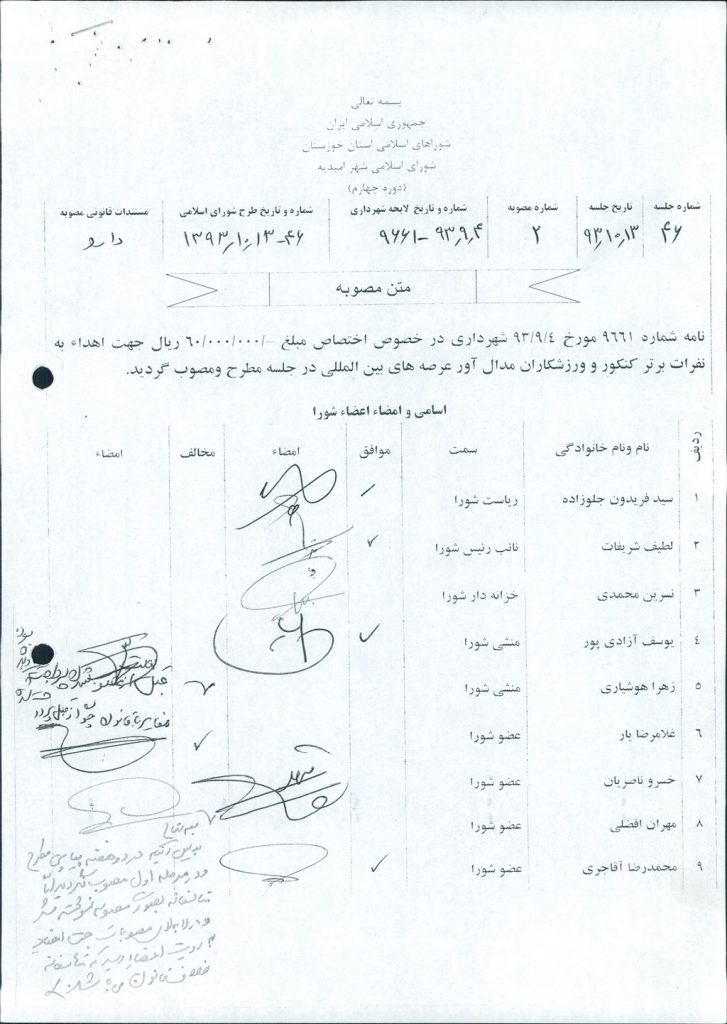 بسمه تعالی
جمهوری اسلامی ایران
شوراهای اسلامی استان خوزستان
شورای اسلامی شهر امیدیه
(دوره چهارم)
شماره جلسه تاریخ جلسه شماره مصوبه شماره و تاریخ لایحه شهرداری شماره و تاریخ طرح شورای اسلامی مستندات قانونی مصوبه
۴۶ ۹۳٫۱۰٫۱۳ ۲ ۹۶۶۱-۹۳٫۹٫۴ ۴۶-۱۳۹۳٫۱۰٫۱۳ دارد
متن مصوبه
نامه شماره ۹۶۶۱ مورخ ۹۳/۹/٤ شهرداری در خصوص اختصاص مبلغ -/۶۰/۰۰۰/۰۰۰ ریال جهت اهداء به
نفرات برتر کنکور و ورزشکاران مدال آور عرصه های بین المللی در جلسه مطرح ومصوب گردید.
اسامی و امضاء اعضاء شورا
ردیف نام ونام خانوادگی سمت موافق امضاء مخالف امضاء
۱ سید فریدون جلوزاده ریاست شورا
۲ لطیف شریفات نائب رئیس شورا
۳ نسرین محمدی خزانه دار شورا
٤ یوسف آزادی پور منشی شورا
۵ زهرا هوشیاری منشی شورا
۶ غلامرضا یار عضو شورا
۷ خسرو ناصریان عضو شورا
۸ مهران افضلی عضو شورا
۹ محمدرضا آقاجری عضو شورا
قبل از
مغایر با قانون
بسمه تعالی
بدلیل اینکه در دو هفته پیاپی مطرح
و در مرحله اول مصوب نگردید اما
متاسفانه بصورت مصوبه
و در لابلای مصوبات جهت امضاء
به رویت اعضاء رسید که متاسفانه
خلاف قانون می باشد